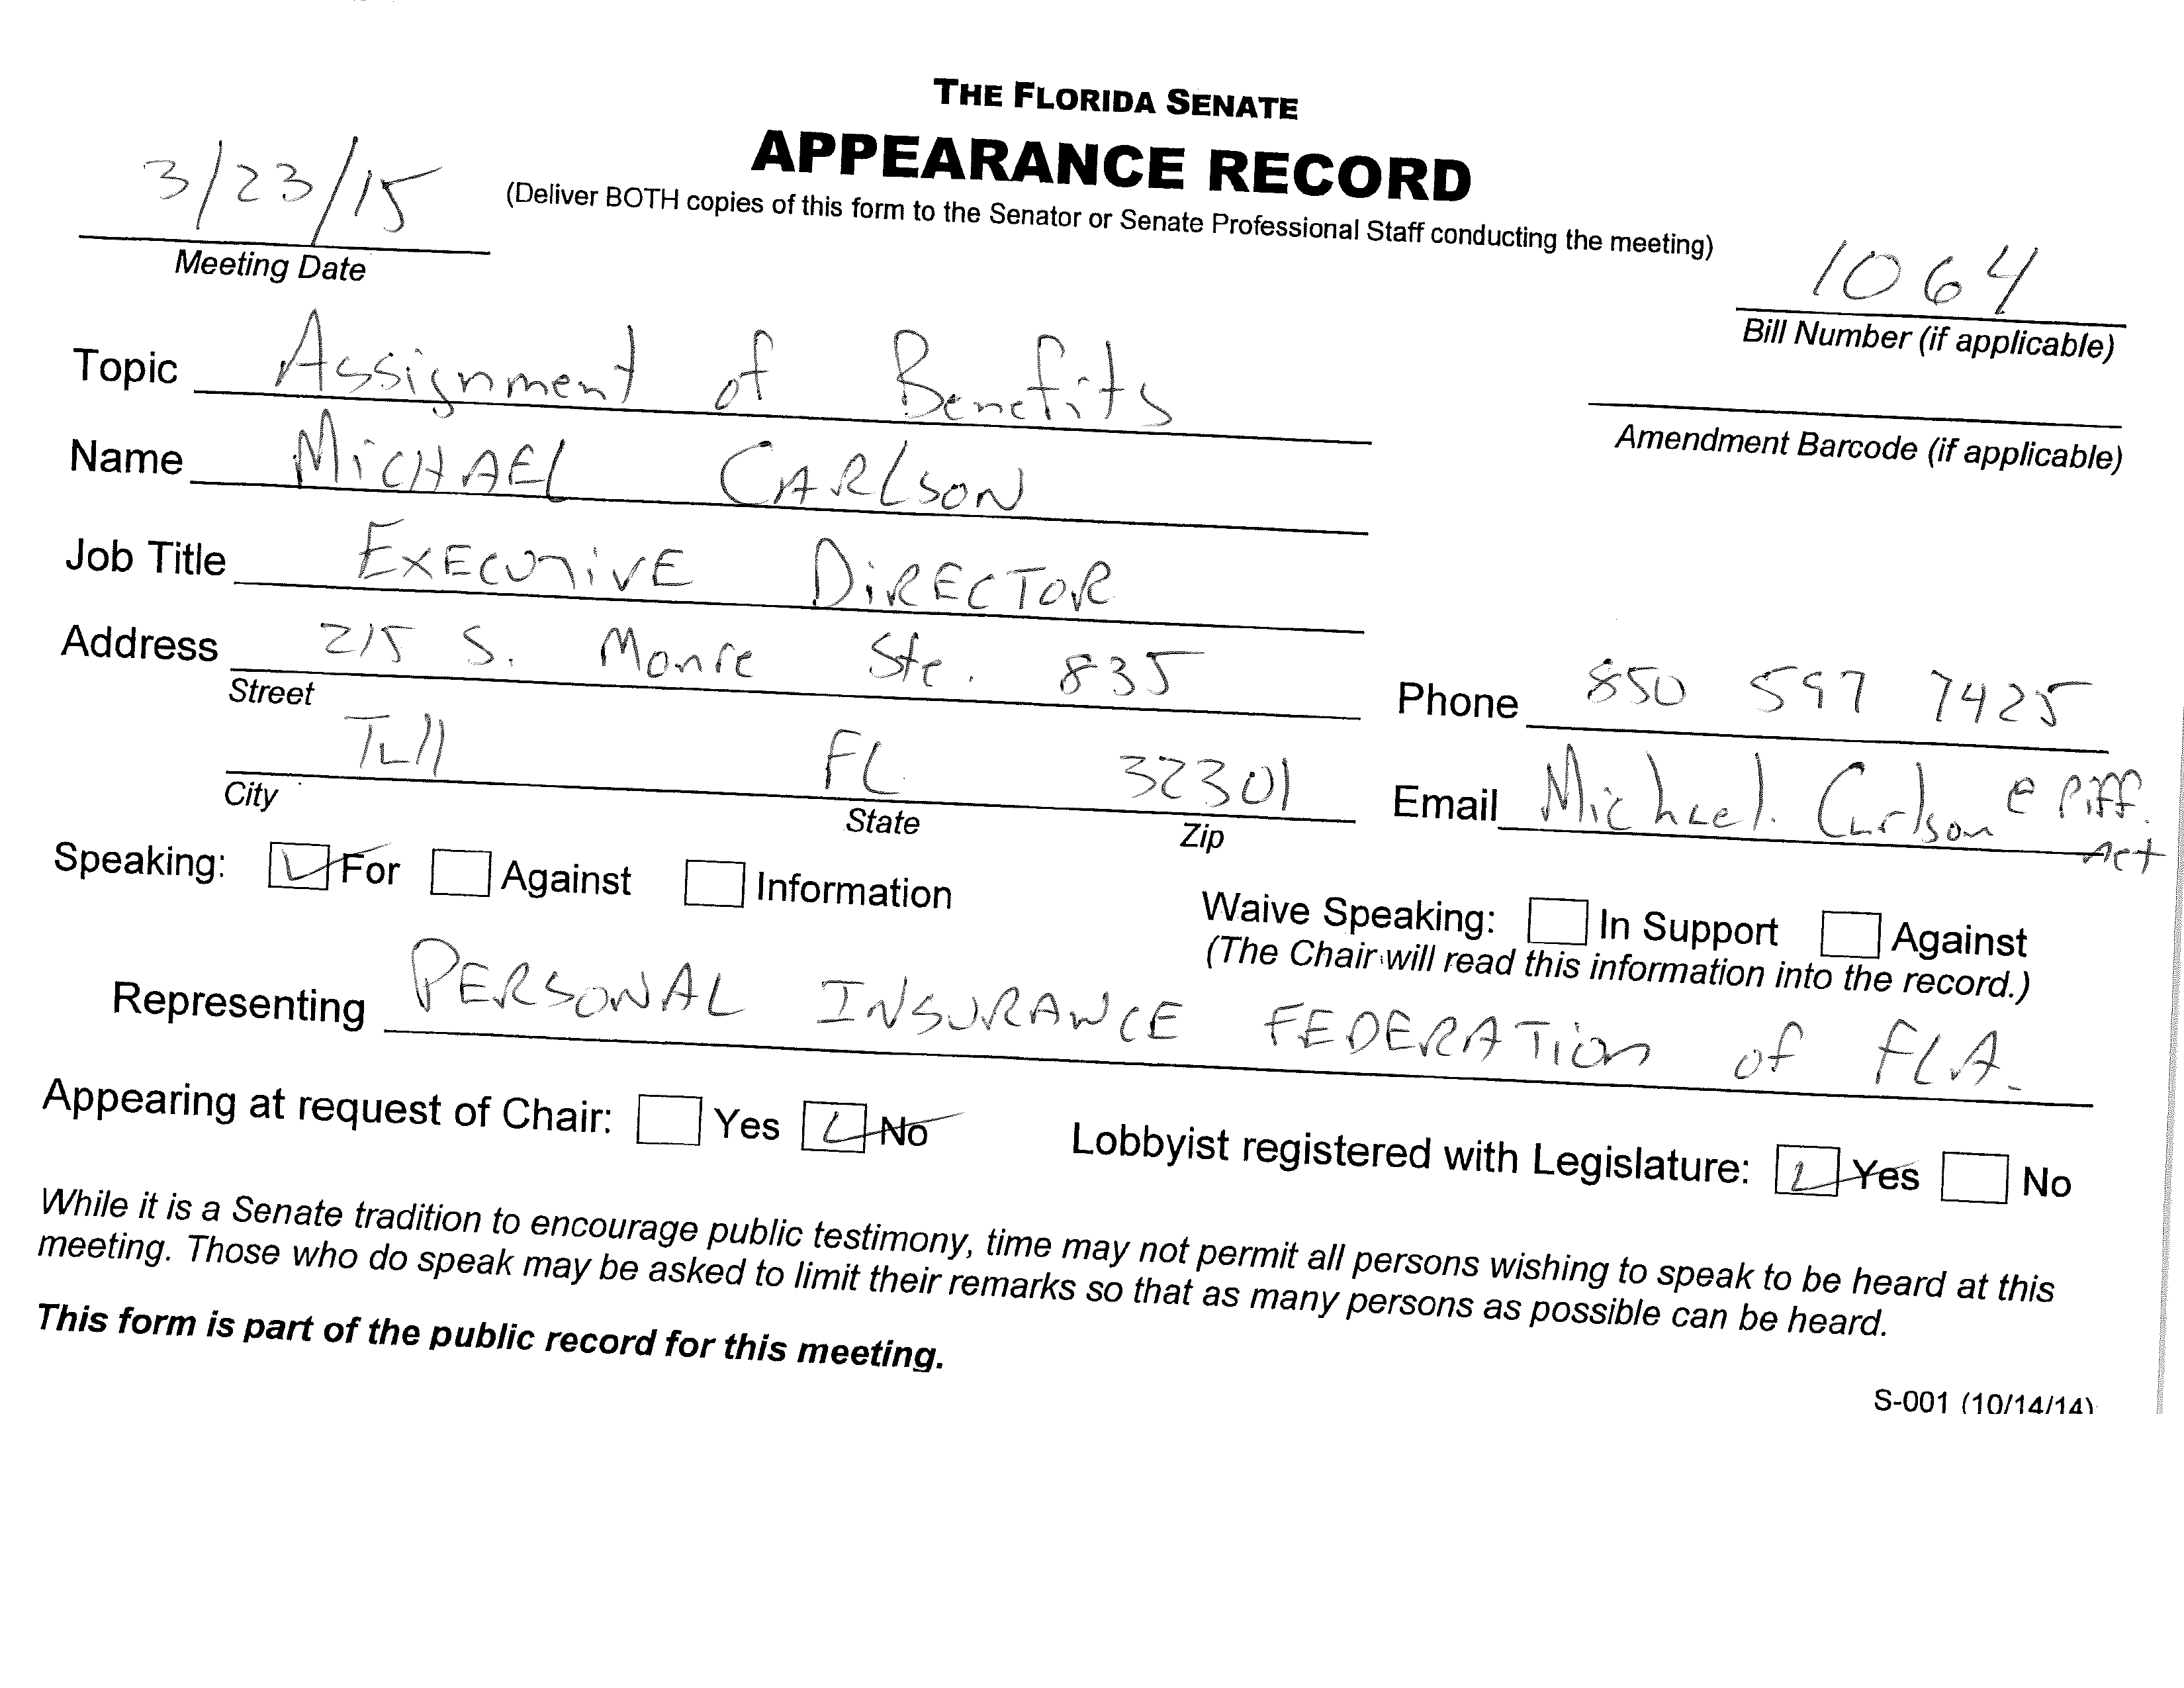 THE FLORIDA SENATE
APPEARANCE RECORD
(Deliver BOTH copies of this form to the Senator or Senate Professional Staff conducting the meeting)
3/23/15
Meeting Date
1064
Bill Number (if applicable)
Topic Assignment of Benefits
Amendment Barcode (if applicable)
Name MICHAEL CARLSON
Job Title EXECUTIVE DIRECTOR
Address 215 S. Monroe Ste. 835
Street
Phone 850 597 7425
Tall FL 32301
City State Zip
Email Michael.Carlson@piff.
net
Speaking: For Against Information
Waive Speaking: In Support Against
(The Chair will read this information into the record.)
Representing PERSONAL INSURANCE FEDERATION of FLA.
Appearing at request of Chair: Yes No
Lobbyist registered with Legislature: Yes No
While it is a Senate tradition to encourage public testimony, time may not permit all persons wishing to speak to be heard at this
meeting. Those who do speak may be asked to limit their remarks so that as many persons as possible can be heard.
This form is part of the public record for this meeting.
S-001 (10/14/14)